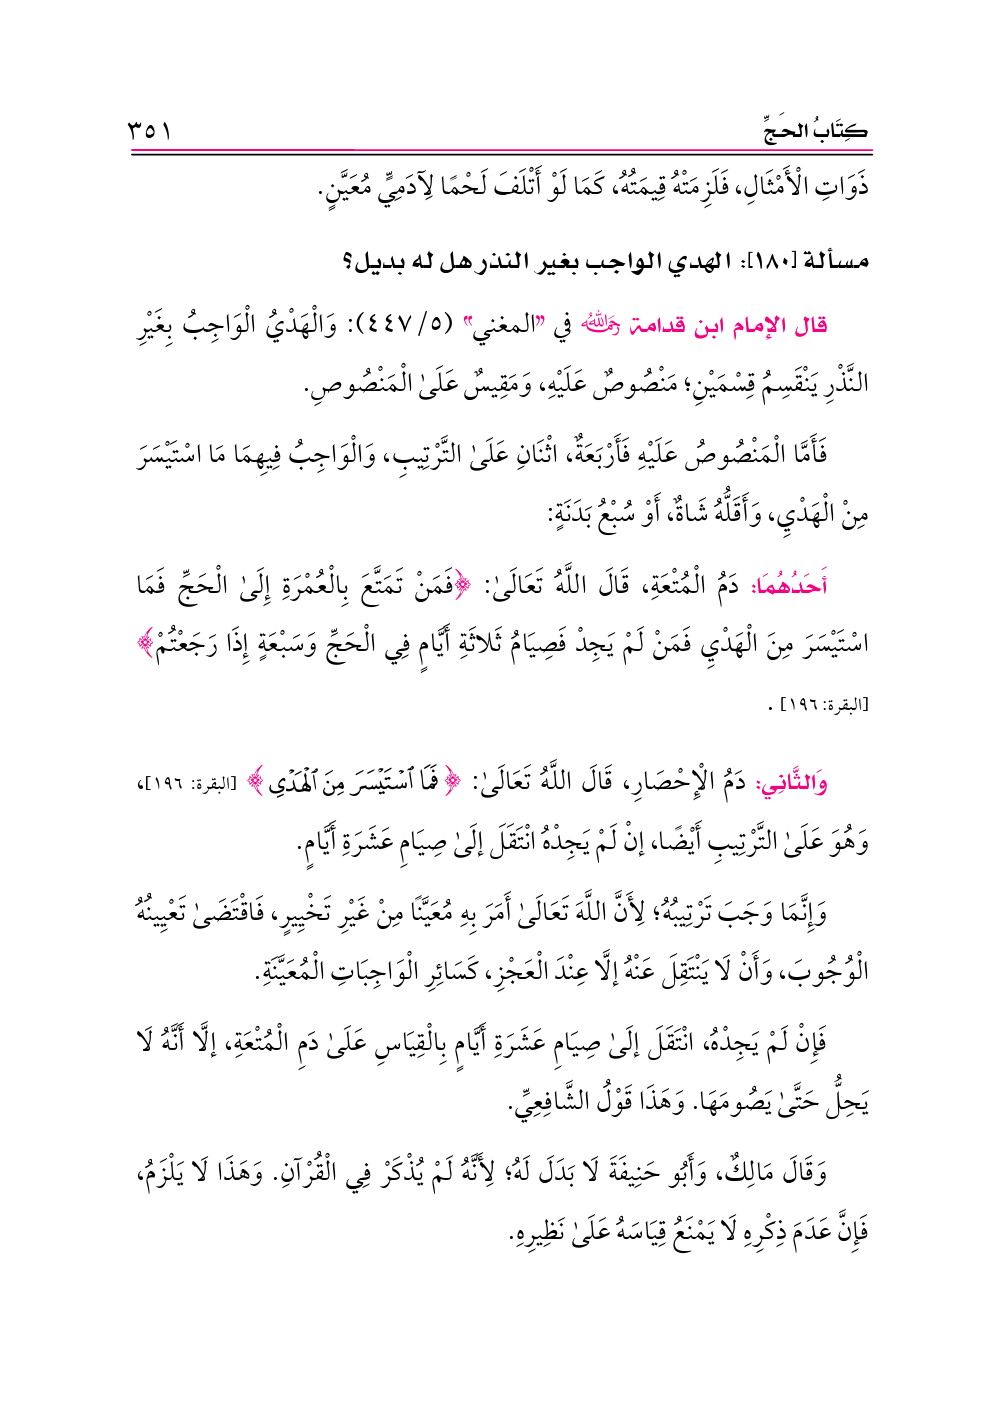 كِتَابُ الحَجِّ ٣٥١
ذَوَاتِ الْأَمْثَالِ، فَلَزِمَتْهُ قِيمَتُهُ، كَمَا لَوْ أَتْلَفَ لَحْمًا لِآدَمِيٍّ مُعَيَّنٍ.
مسألة [١٨٠]: الهدي الواجب بغير النذر هل له بديل؟
قال الإمام ابن قدامة رحمه الله في "المغني" (٥/ ٤٤٧): وَالْهَدْيُ الْوَاجِبُ بِغَيْرِ
النَّذْرِ يَنْقَسِمُ قِسْمَيْنِ؛ مَنْصُوصٌ عَلَيْهِ، وَمَقِيسٌ عَلَىٰ الْمَنْصُوصِ.
فَأَمَّا الْمَنْصُوصُ عَلَيْهِ فَأَرْبَعَةٌ، اثْنَانِ عَلَىٰ التَّرْتِيبِ، وَالْوَاجِبُ فِيهِمَا مَا اسْتَيْسَرَ
مِنْ الْهَدْيِ، وَأَقَلُّهُ شَاةٌ، أَوْ سُبْعُ بَدَنَةٍ:
أَحَدُهُمَا: دَمُ الْمُتْعَةِ، قَالَ اللَّهُ تَعَالَىٰ: ﴿فَمَنْ تَمَتَّعَ بِالْعُمْرَةِ إِلَىٰ الْحَجِّ فَمَا
اسْتَيْسَرَ مِنَ الْهَدْيِ فَمَنْ لَمْ يَجِدْ فَصِيَامُ ثَلاثَةِ أَيَّامٍ فِي الْحَجِّ وَسَبْعَةٍ إِذَا رَجَعْتُمْ﴾
[البقرة: ١٩٦] .
وَالثَّانِي: دَمُ الْإِحْصَارِ، قَالَ اللَّهُ تَعَالَىٰ: ﴿فَمَا ٱسْتَيْسَرَ مِنَ ٱلْهَدْيِ﴾ [البقرة: ١٩٦]،
وَهُوَ عَلَىٰ التَّرْتِيبِ أَيْضًا، إنْ لَمْ يَجِدْهُ انْتَقَلَ إلَىٰ صِيَامِ عَشَرَةِ أَيَّامٍ.
وَإِنَّمَا وَجَبَ تَرْتِيبُهُ؛ لِأَنَّ اللَّهَ تَعَالَىٰ أَمَرَ بِهِ مُعَيَّنًا مِنْ غَيْرِ تَخْيِيرٍ، فَاقْتَضَىٰ تَعْيِينُهُ
الْوُجُوبَ، وَأَنْ لَا يَنْتَقِلَ عَنْهُ إلَّا عِنْدَ الْعَجْزِ، كَسَائِرِ الْوَاجِبَاتِ الْمُعَيَّنَةِ.
فَإِنْ لَمْ يَجِدْهُ، انْتَقَلَ إلَىٰ صِيَامِ عَشَرَةِ أَيَّامٍ بِالْقِيَاسِ عَلَىٰ دَمِ الْمُتْعَةِ، إلَّا أَنَّهُ لَا
يَحِلُّ حَتَّىٰ يَصُومَهَا. وَهَذَا قَوْلُ الشَّافِعِيِّ.
وَقَالَ مَالِكٌ، وَأَبُو حَنِيفَةَ لَا بَدَلَ لَهُ؛ لِأَنَّهُ لَمْ يُذْكَرْ فِي الْقُرْآنِ. وَهَذَا لَا يَلْزَمُ،
فَإِنَّ عَدَمَ ذِكْرِهِ لَا يَمْنَعُ قِيَاسَهُ عَلَىٰ نَظِيرِهِ.